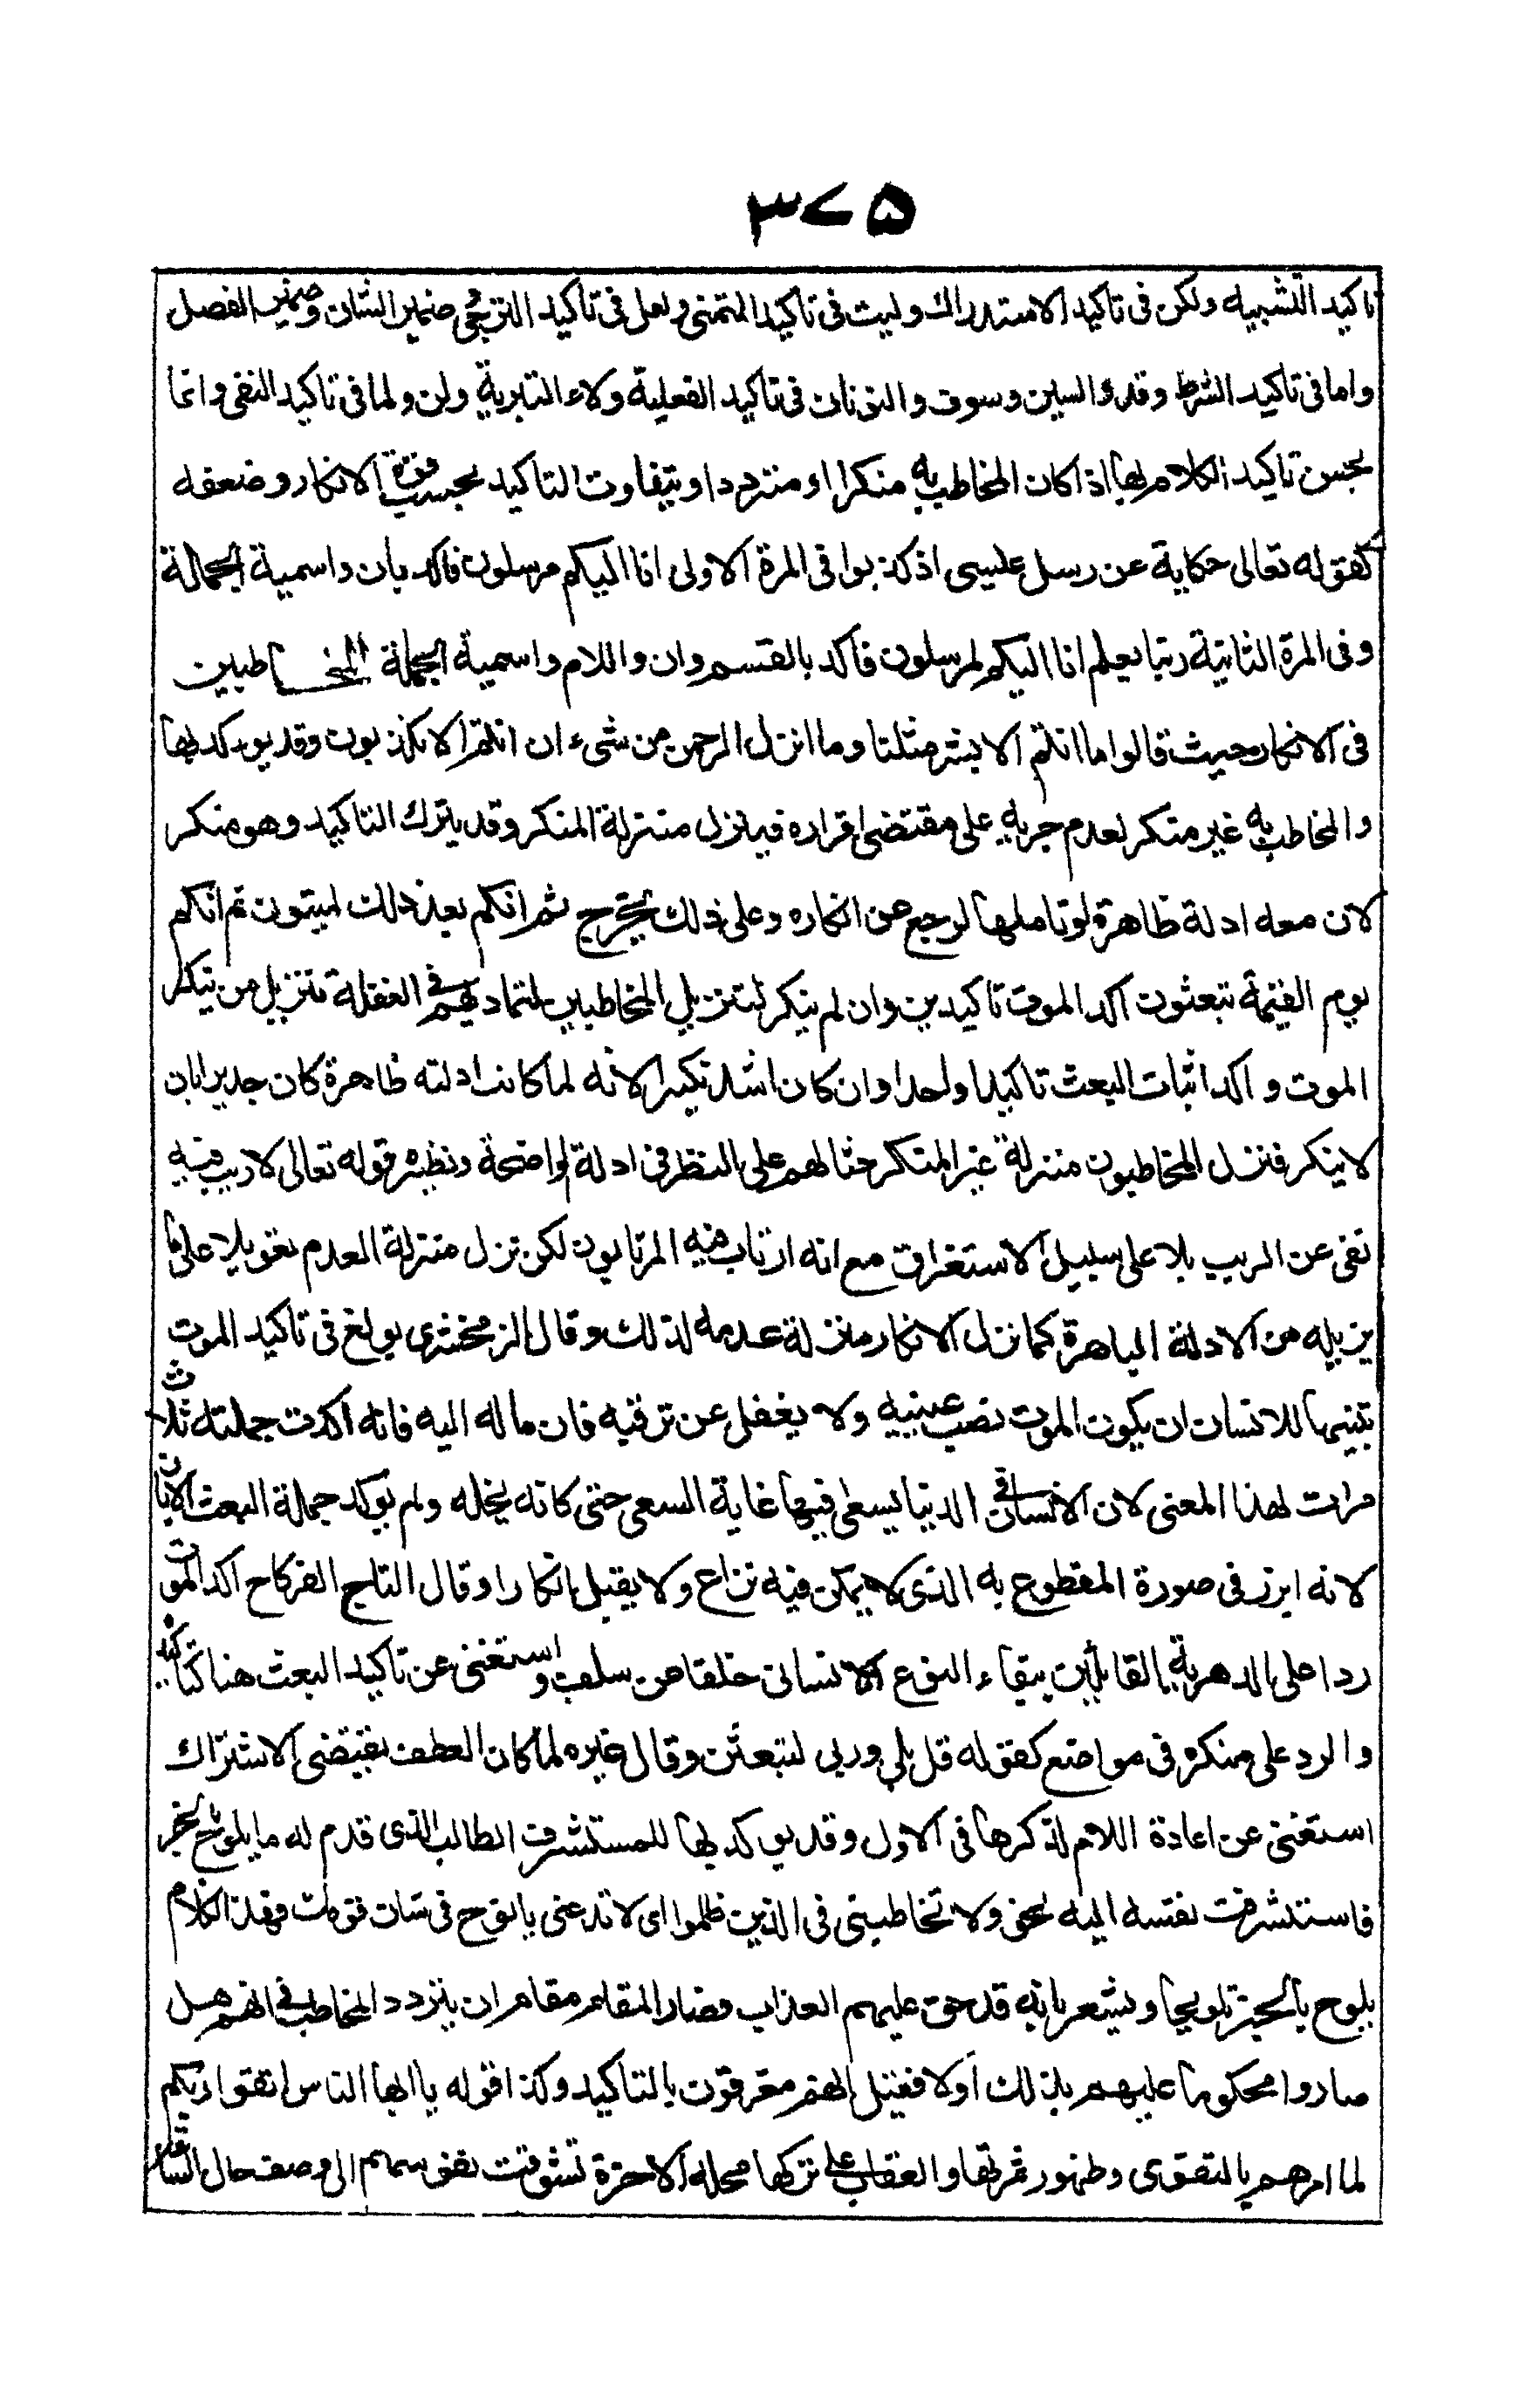 ٣٧٥
تاكيد التشبيه ولكن فى تاكيد الاستدراك وليت فى تاكيد التمنى ولعل فى تاكيد الترجى وضمير الشان وضمير الفصل
واما فى تاكيد الشرط وقد والسين وسوف والنونان فى تاكيد الفعلية ولاء التبرية ولن ولما فى تاكيد النفى وانما
يحسن تاكيد الكلام بها اذا كان المخاطب به منكرا او مترددا ويتفاوت التاكيد بحسب قوة الانكار وضعفه
كقوله تعالى حكاية عن رسل عليسى اذ كذبوا فى المرة الاولى انا اليكم مرسلون فاكد بان واسمية الجملة
وفى المرة الثانية ربنا يعلم انا اليكم لمرسلون فاكد بالقسم وان واللام واسمية الجملة المخاطبين
فى الانكار حيث قالوا ما انتم الا بشر مثلنا وما انزل الرحمن من شىء ان انتم الا تكذبون وقد يوكد بها
والمخاطب به غير منكر لعدم جريه على مقتضى اقراره فينزل منزلة المنكر وقد يترك التاكيد وهو منكر
لان معه ادلة ظاهرة لو تاملها لرجع عن انكاره وعلى ذلك يخرج ثم انكم بعد ذلك لميتون ثم انكم
يوم القيمة تبعثون اكد الموت تاكيدين وان لم ينكر لتنزيل المخاطبين لتماديهم فى الغفلة تنزيل من ينكر
الموت و اكد اثبات البعث تاكيدا واحدا وان كان اشد نكيرا لانه لما كانت ادلته ظاهرة كان جديرا بان
لا ينكر فنزل المخاطبون منزلة غير المنكر حثا لهم على النظر فى ادلة الواضحة ونظيره قوله تعالى لا ريب فيه
نفى عن الريب بلا على سبيل الاستغراق مع انه ارتاب فيه المرتابون لكن نزل منزلة العدم تعويلا على ما
يزيله من الادلة الباهرة كما نزل الانكار منزلة عدمه لذلك وقال الزمخشرى بولغ فى تاكيد الموت
تنبيها للانسان ان يكون الموت نصب عينيه ولا يغفل عن ترقبه فان ماله اليه فانه اكدت جملته ثلاث
مرات لهذا المعنى لان الانسان فى الدنيا يسعى فيها غاية السعى حتى كانه يخله ولم يوكد جملة البعث الا بان
لانه ابرز فى صورة المقطوع به الذى لا يمكن فيه نزاع ولا يقبل انكارا وقال التاج الفركاح اكد الموت
ردا على الدهرية القائلين ببقاء النوع الانسانى خلفا من سلف واستغنى عن تاكيد البعث هنا لتاكيده
والرد على منكره فى مواضع كقوله قل بلى وربى لتبعثن وقال غيره لما كان العطف يقتضى الاشتراك
استغنى عن اعادة اللام لذكرها فى الاول وقد يوكد بها للمستشرف الطالب الذى قدم له ما يلوح بالخبر
فاستشرفت نفسه اليه نحو ولا تخاطبنى فى الذين ظلموا اى لا تدعنى يا نوح فى شان قومك فهذا الكلام
يلوح بالخبر تلويحا ويشعر بانه قد حق عليهم العذاب فصار المقام مقام ان يتردد المخاطب فى انهم هل
صاروا محكوما عليهم بذلك اولا فقيل انهم مغرقون بالتاكيد وكذا قوله يا ايها الناس اتقوا ربكم
لما امرهم بالتقوى وظهور ثمرتها والعقاب على تركها محله الاخرة تشوقت نفوسهم الى وصف حال الساعة